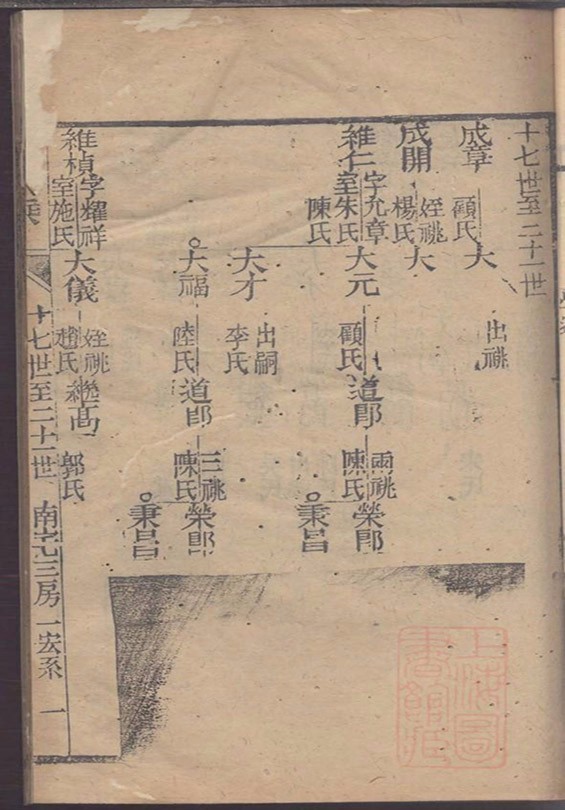 十七世至二十一世
成章
顧氏
大
出祧
成開
姪祧
楊氏
大
維仁
字允章
室朱氏
陳氏
大元
顧氏
道郎
兩祧
陳氏
榮郎
秉昌
大才
出嗣
李氏
大福
陸氏
道郎
三祧
陳氏
榮郎
秉昌
維楨
字耀祥
室施氏
大儀
姪祧
趙氏
高
郭氏
十七世至二十一世
南沙三房一宏系
一
上海圖書館藏